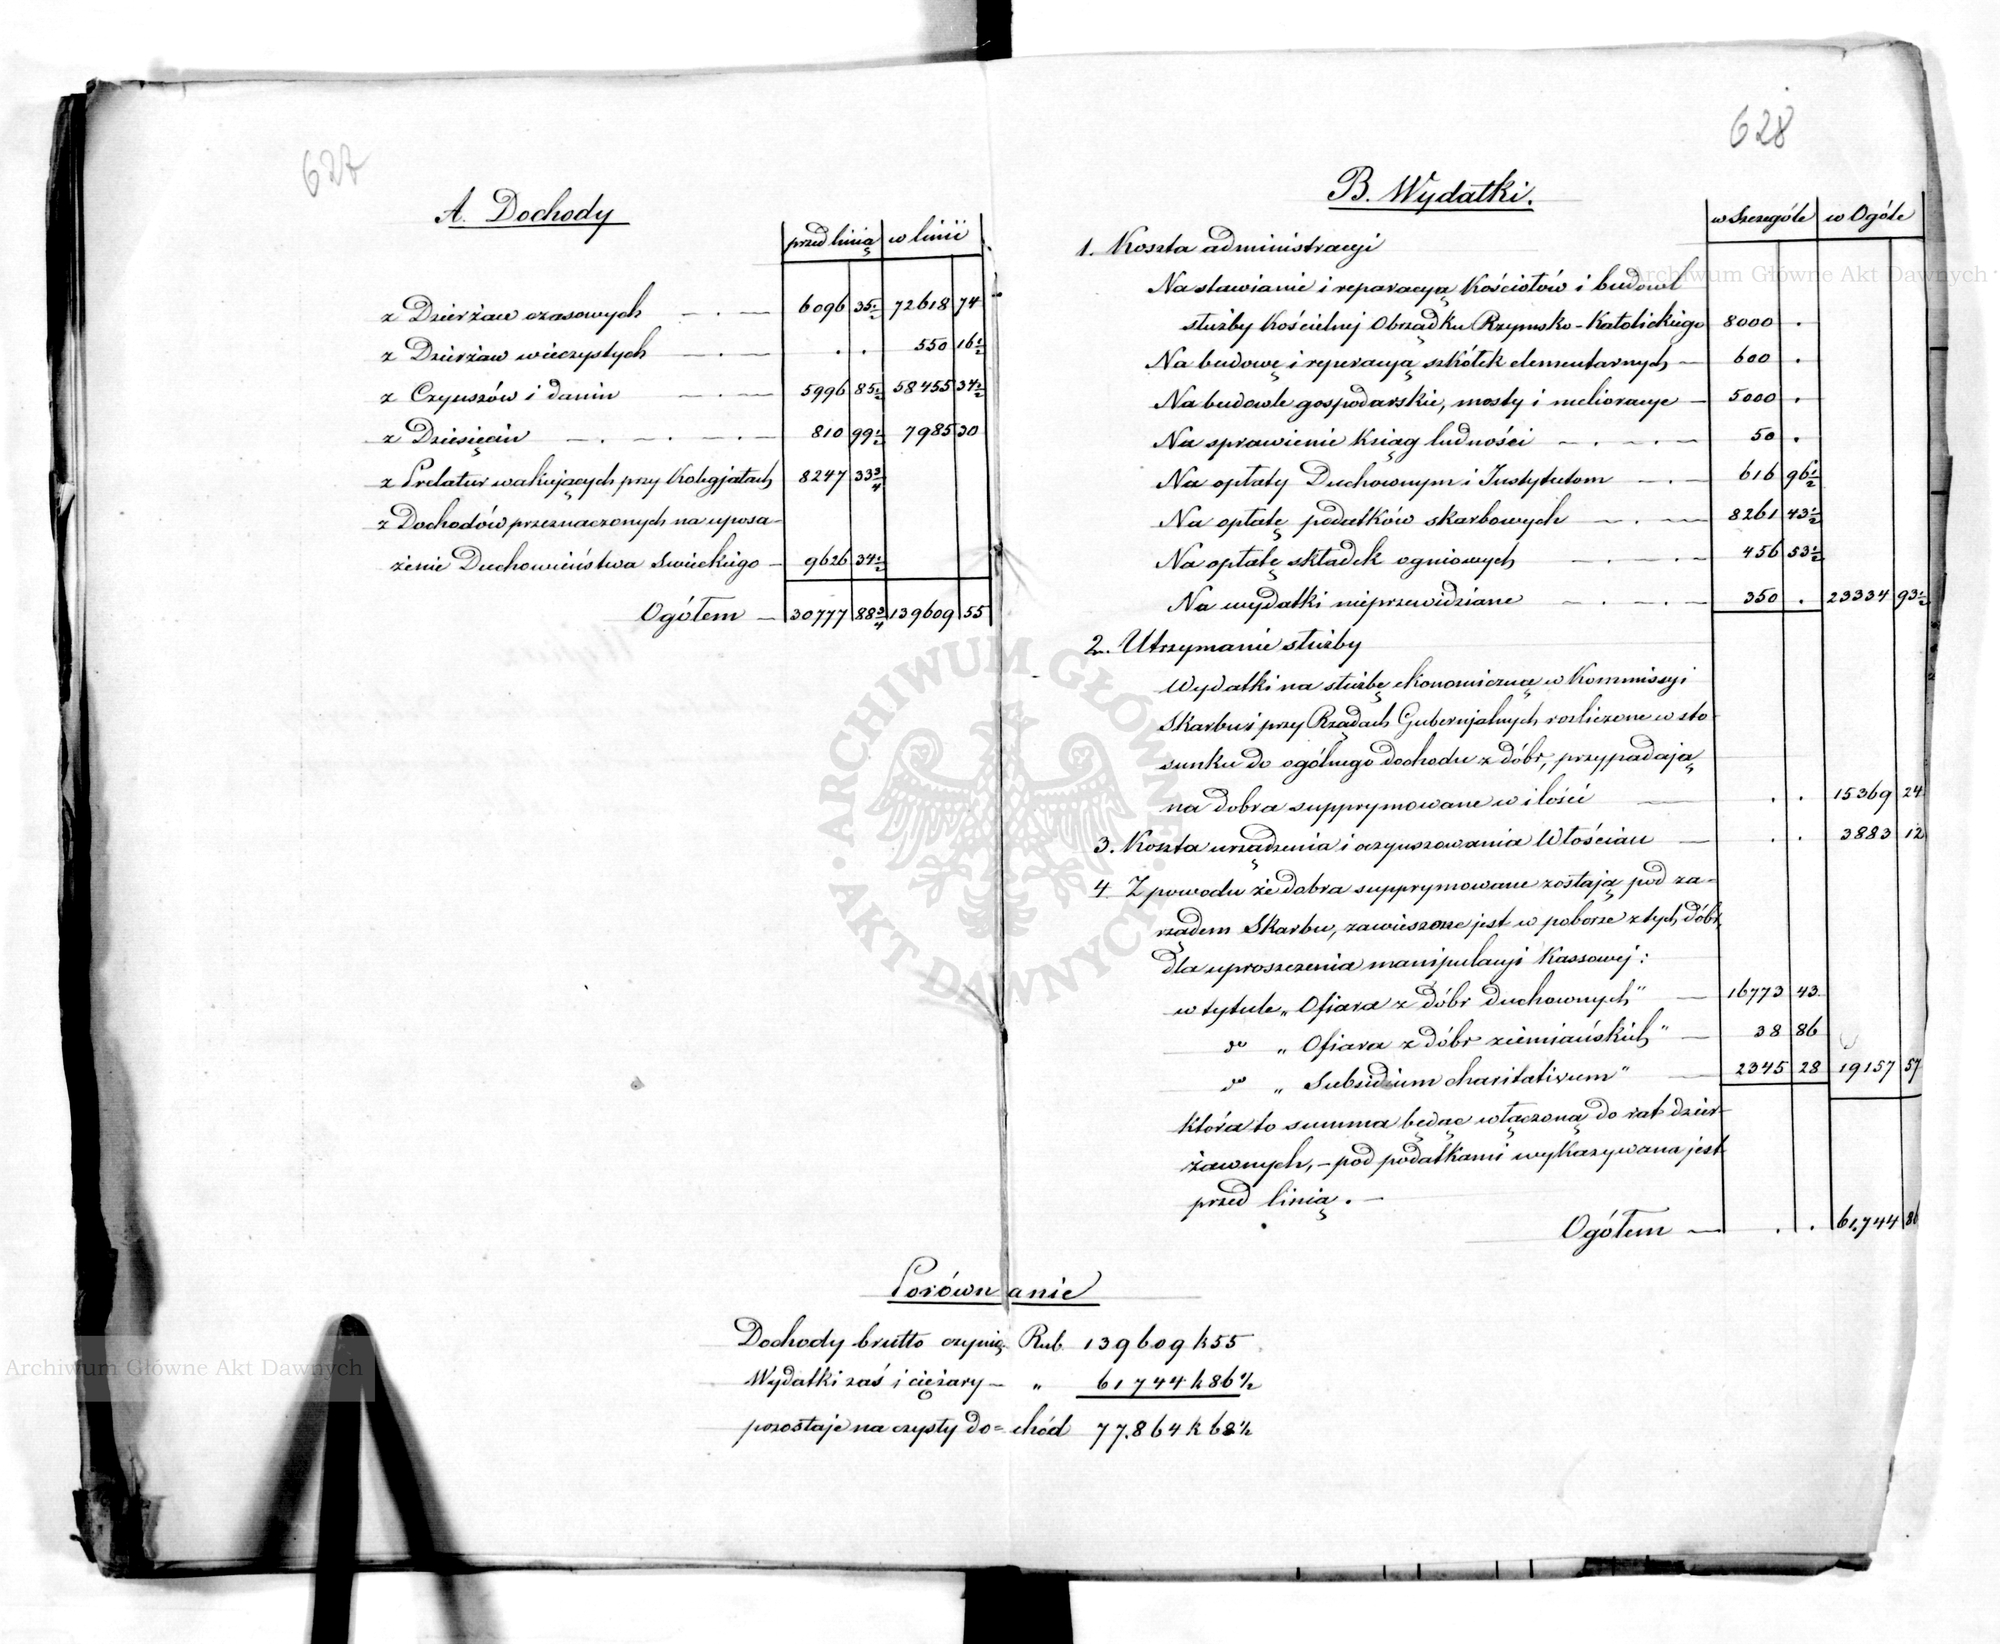 627
A. Dochody
przed linią w linii
z Dzierżaw czasowych — . — 6096 35½ 72618 74
z Dzierżaw wieczystych — . — . . 550 16½
z Czynszów i danin — . — 5996 85½ 58455 34½
z Dziesięcin — . — . — . — 810 99½ 7985 30
z Prelatur wakujących przy Kolegjatach 8247 33¾
z Dochodów przeznaczonych na uposa-
żenie Duchowieństwa Swieckiego — 9626 34½
Ogółem — 30777 88¾ 139609 55
628
B. Wydatki.
w Szczególe w Ogóle
1. Koszta administracyi
Na stawianie i reparacyą Kościołów i budowl
służby Kościelnej Obrządku Rzymsko-Katolickiego 8000 .
Na budowę i reperacyą szkółek elementarnych — 600 .
Na budowle gospodarskie, mosty i melioracye — 5000 .
Na sprawienie Ksiąg ludności — . — . — 50 .
Na opłaty Duchownym i Instytutom — . — 616 96½
Na opłatę podatków skarbowych — . — 8261 43½
Na opłatę składek ogniowych — . — . — 456 53½
Na wydatki nieprzewidziane — . — . — 350 . 23334 93½
2. Utrzymanie służby
Wydatki na służbę ekonomiczną w Kommissyi
Skarbu i przy Rządach Gubernjalnych rozliczone w sto-
sunku do ogólnego dochodu z dóbr, przypadają
na dobra supprymowane w ilości — . . 15369 24
3. Koszta urządzenia i oczynszowania Włościan — . . 3883 12
4 Z powodu że dobra supprymowane zostają pod za-
rządem Skarbu, zawieszone jest w poborze z tych dóbr,
dla uproszczenia manipulacyi Kassowej:
w tytule „Ofiara z dóbr duchownych" — 16773 43
do „Ofiara z dóbr ziemiańskich" — 38 86
do „Subsidium charitativum" — 2345 28 19157 57
która to summa będąc włączoną do rat dzier-
żawnych, – pod podatkami wykazywana jest
przed linią. —
Ogółem — . . 61,744 86
Porównanie
Dochody brutto czynią Rub. 139609 k 55
Wydatki zaś i ciężary — „ 61744 k 86½
pozostaje na czysty do= chód 77.864 k 68½
ARCHIWUM GŁÓWNE AKT DAWNYCH
Archiwum Główne Akt Dawnych
Archiwum Główne Akt Dawnych